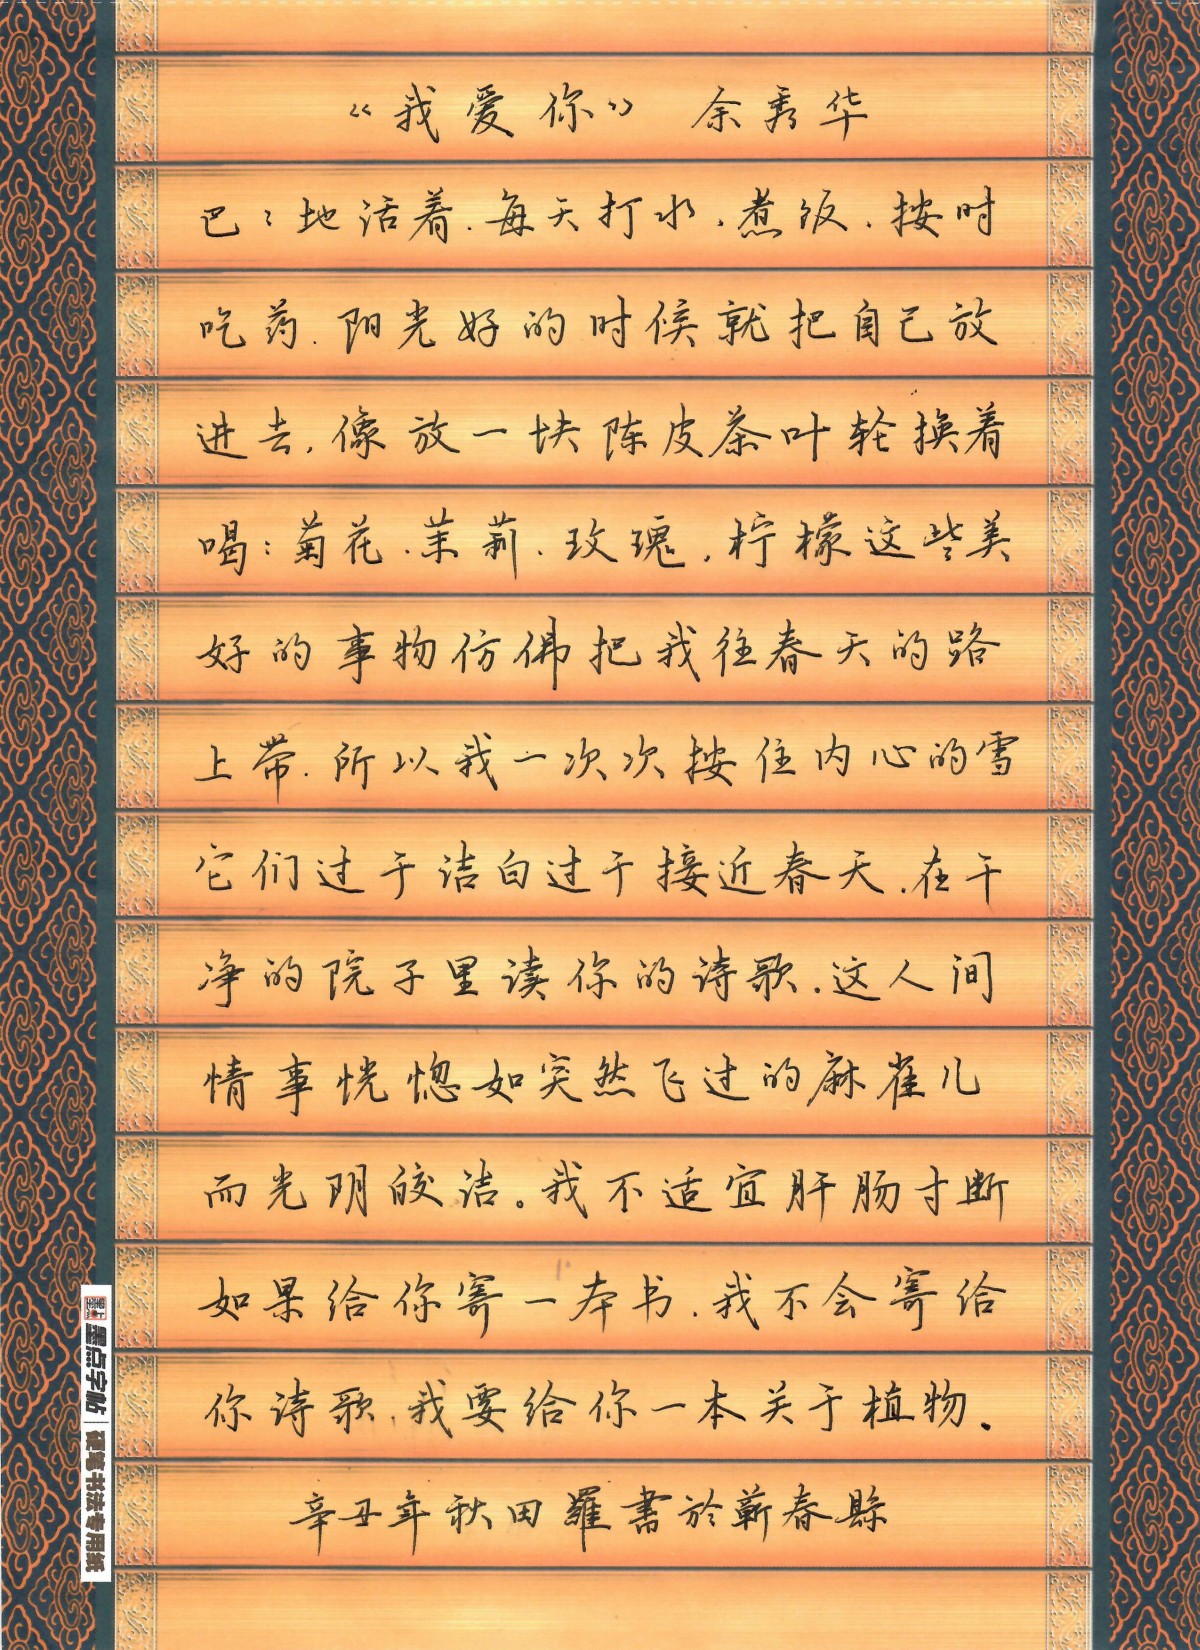 《我爱你》 余秀华
巴巴地活着.每天打水.煮饭.按时
吃药.阳光好的时候就把自己放
进去,像放一块陈皮茶叶轮换着
喝:菊花.茉莉.玫瑰,柠檬这些美
好的事物仿佛把我往春天的路
上带.所以我一次次按住内心的雪
它们过于洁白过于接近春天.在干
净的院子里读你的诗歌.这人间
情事恍惚如突然飞过的麻雀儿
而光阴皎洁。我不适宜肝肠寸断
如果给你寄一本书.我不会寄给
你诗歌.我要给你一本关于植物.
辛丑年秋田羅書於蘄春縣
墨点字帖 硬笔书法专用纸